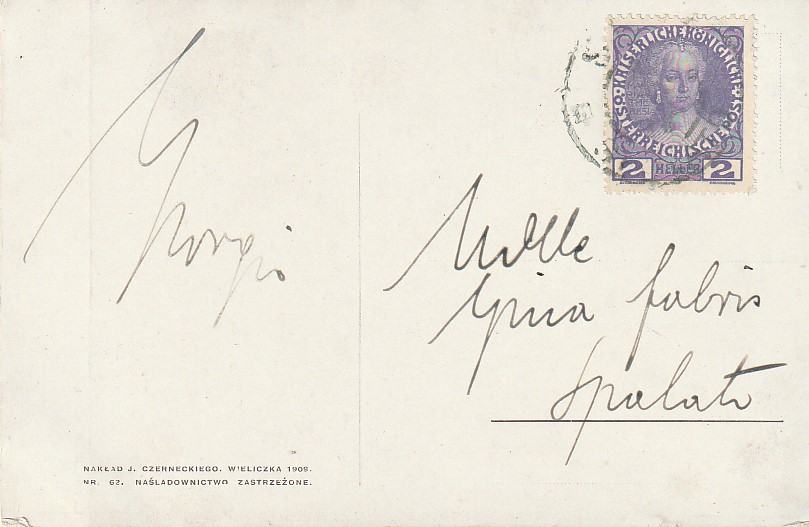 Giorgio
KAISERLICHE KÖNIGLICHE
ÖSTERREICHISCHE POST
2 HELLER 2
Mlle
Gina Fabris
Spalato
NAKŁAD J. CZERNECKIEGO. WIELICZKA 1909.
NR. 62. NAŚLADOWNICTWO ZASTRZEŻONE.